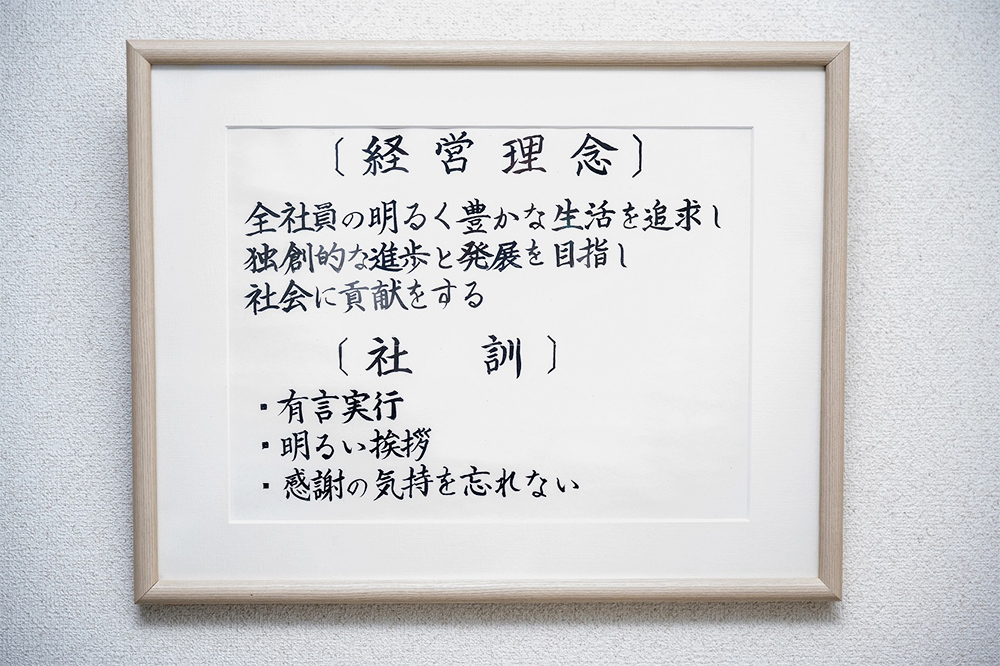 〔経営理念〕
全社員の明るく豊かな生活を追求し
独創的な進歩と発展を目指し
社会に貢献をする
〔社訓〕
・有言実行
・明るい挨拶
・感謝の気持を忘れない